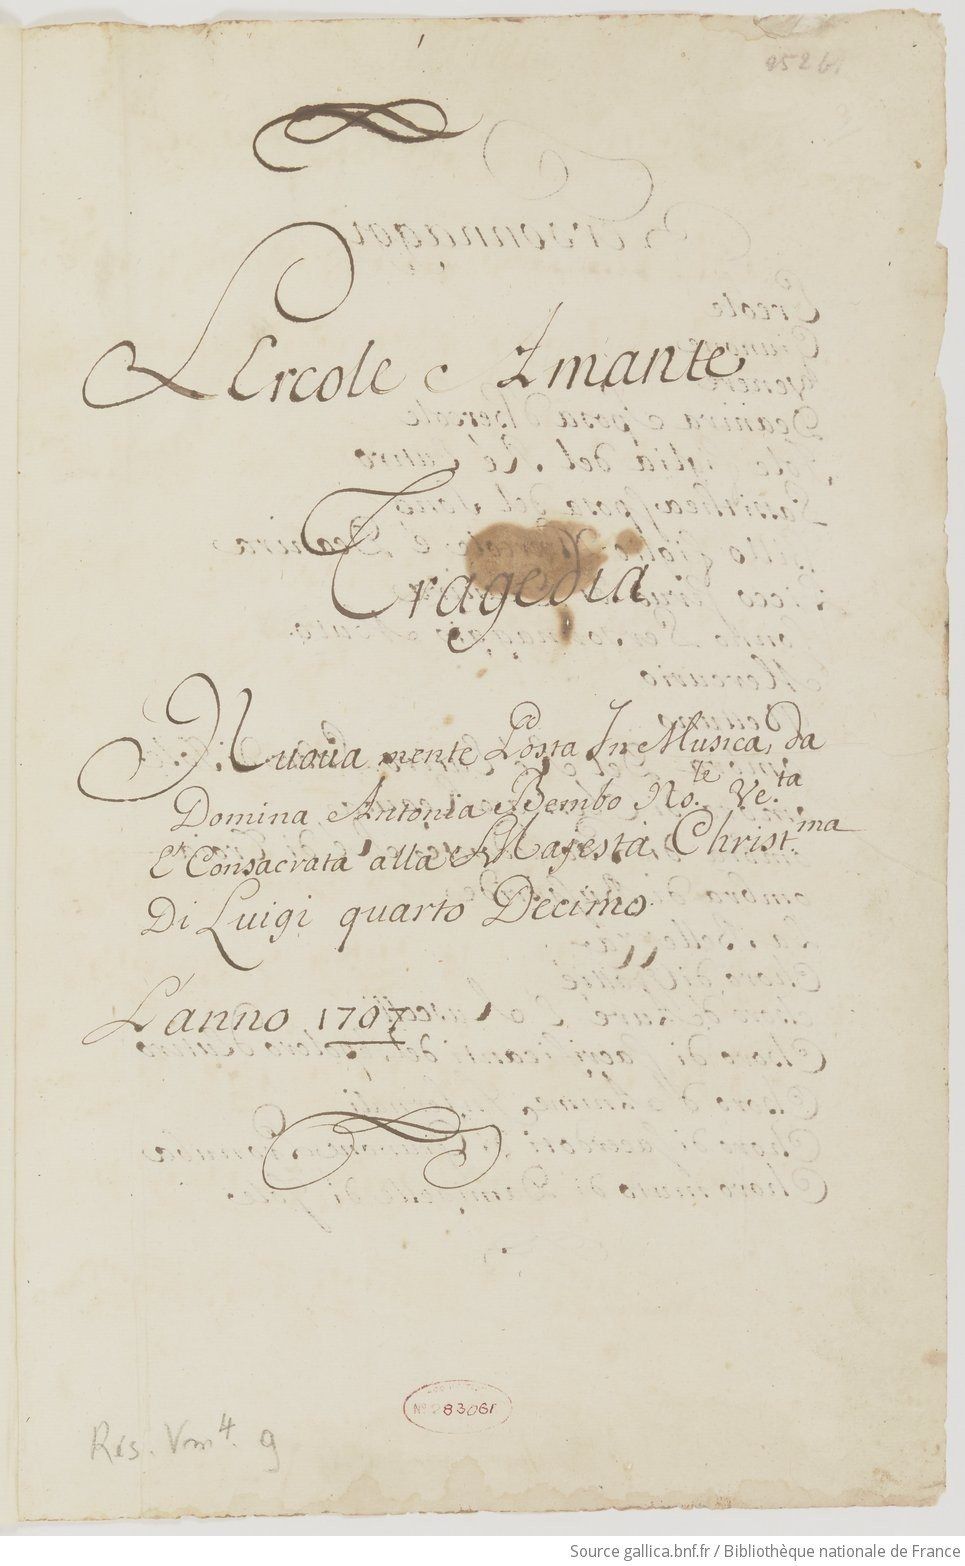 L'Ercole Amante
Tragedia
Nuoua mente Posta In Musica, da
Domina Antonia Bembo No.te Ve.ta
Et Consacrata alla Majestà Christ.ma
Di Luigi quarto Decimo
L'anno 1707
Nº 283061
Rés. Vm4. 9
Source gallica.bnf.fr / Bibliothèque nationale de France